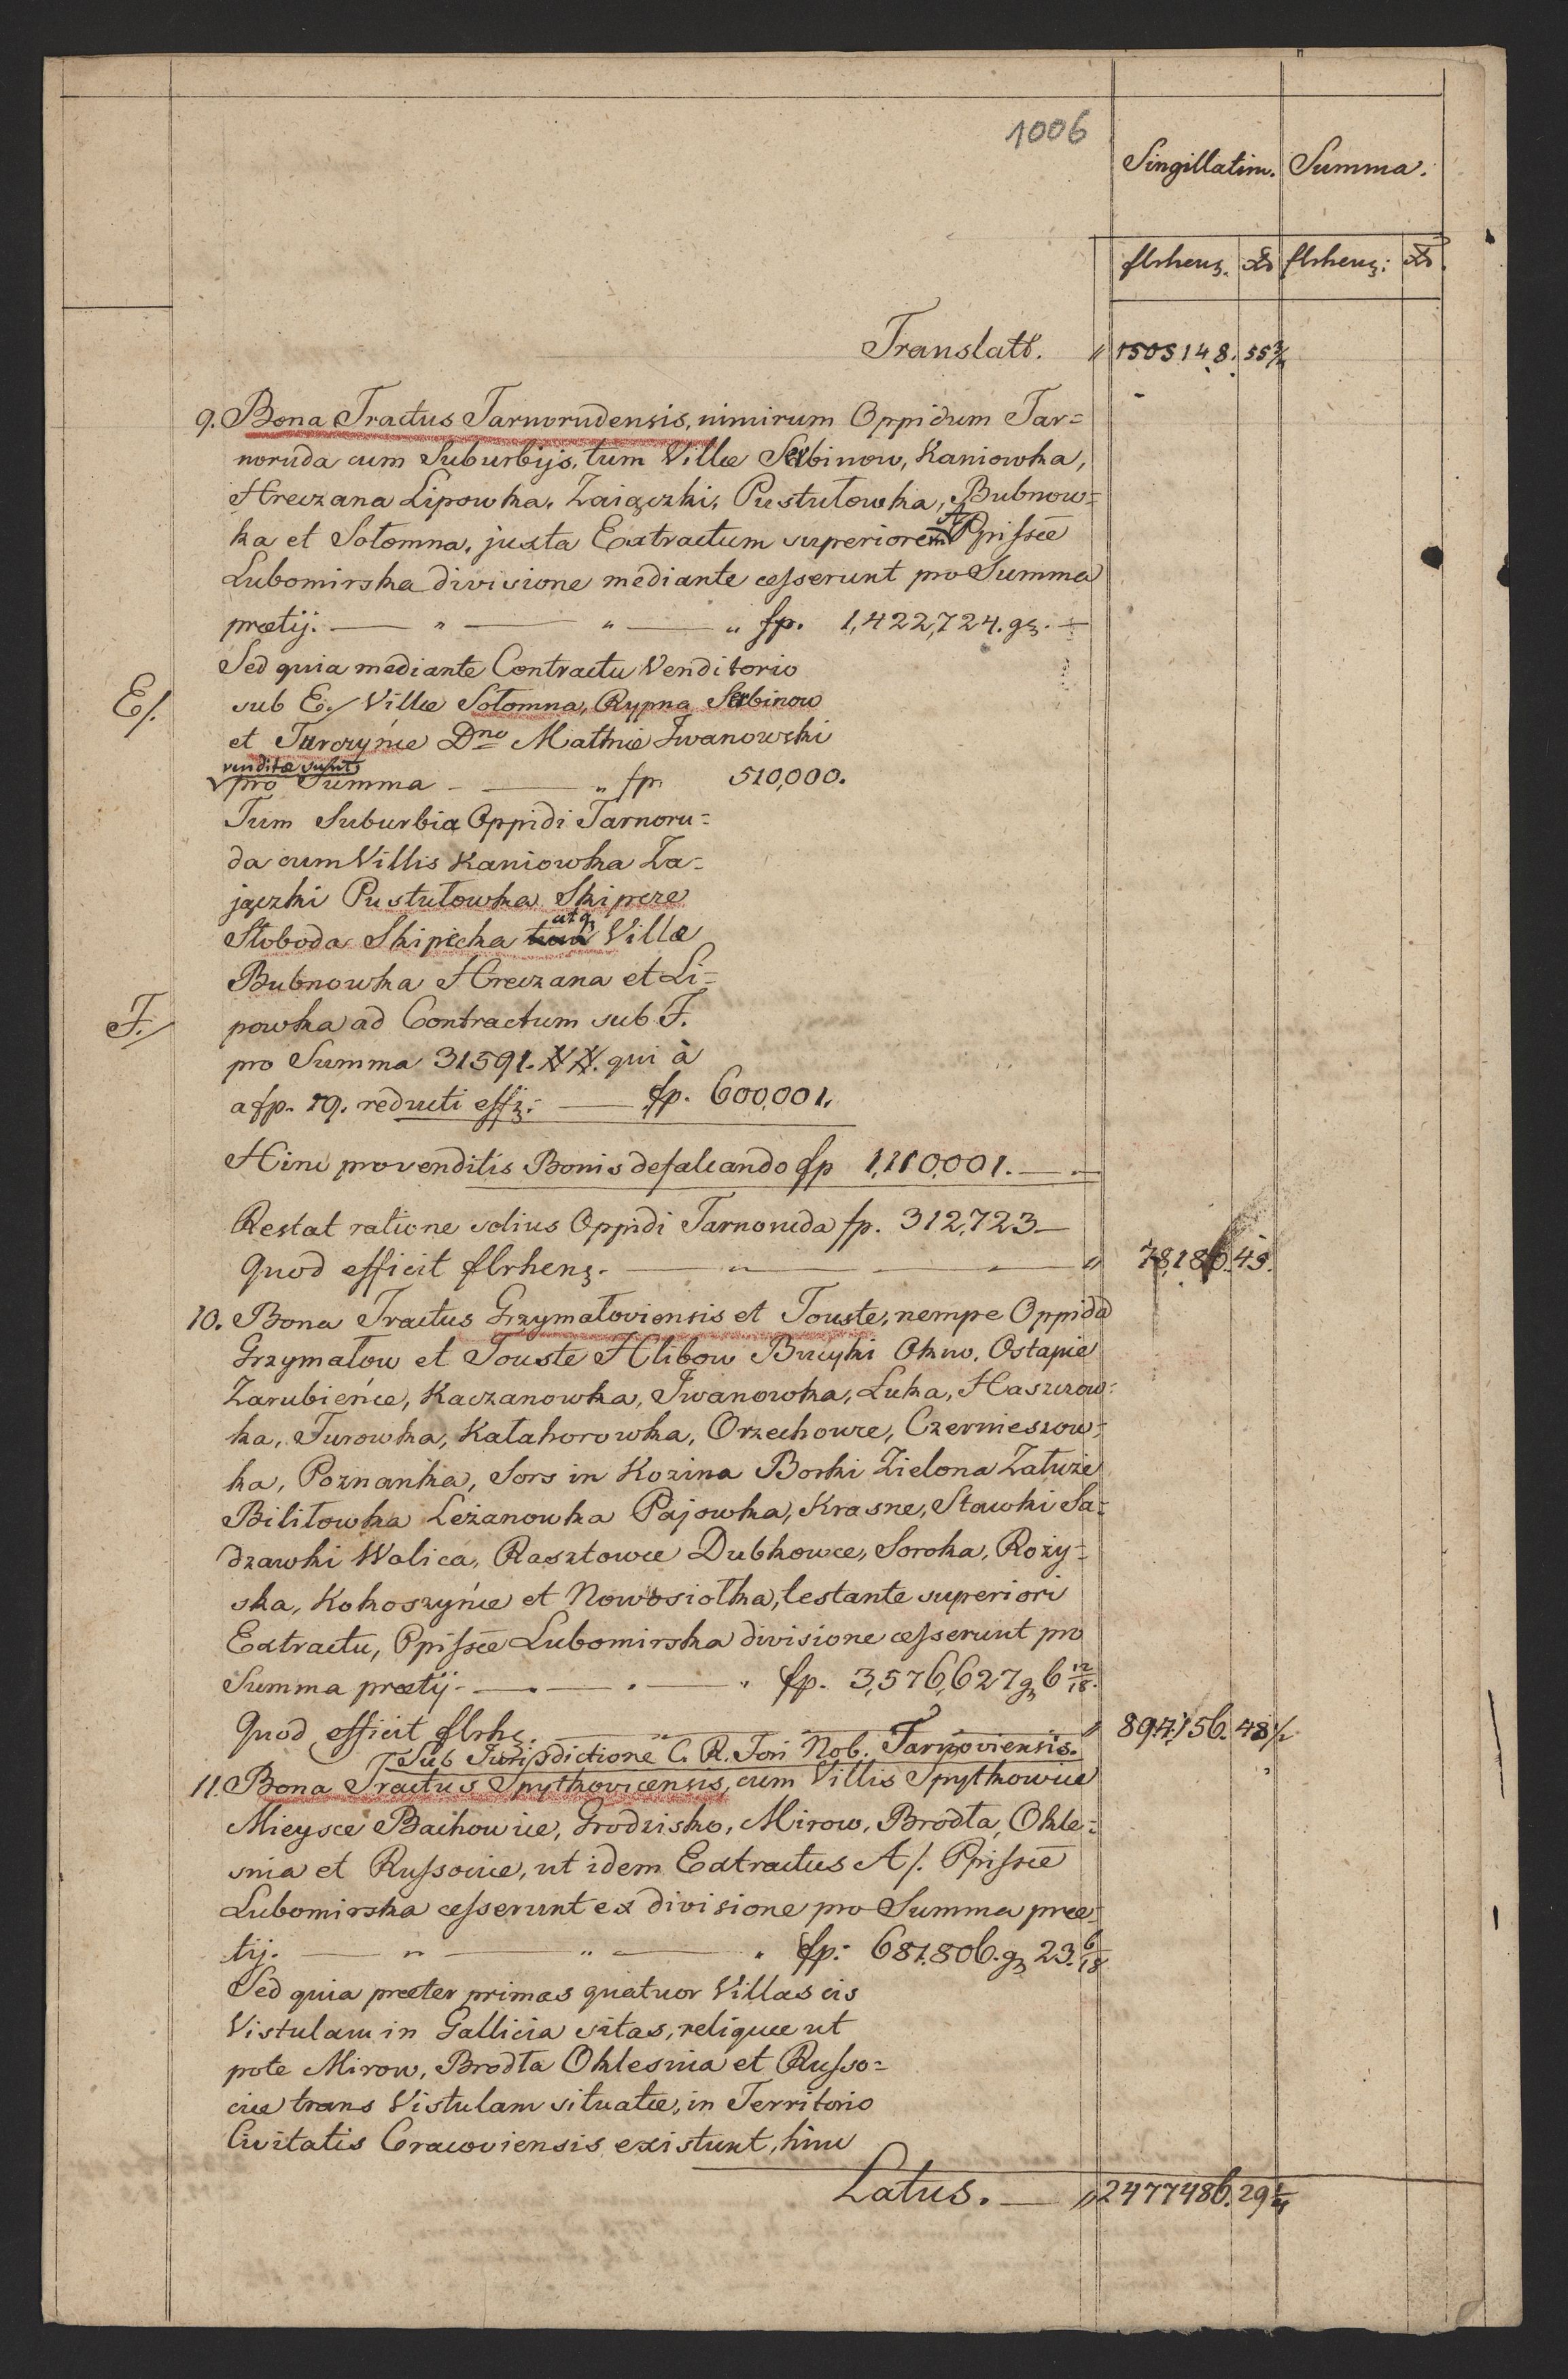 1006
Singillatim. Summa.
flrhens. xr flrhens: xr.
Translatt. " 1505148. 55 3/4
9. Bona Tractus Tarnorudensis, nimirum Oppidum Tar=
noruda cum Suburbijs, tum Villæ Serbinow, Kaniowka,
Hreczana Lipowka, Zaiączki, Pustułowka, Bubnow=
ka et Sołomna, juxta Extractum superiorem A Ppissæ
Lubomirska divisione mediante cesserunt pro Summa
prætij. — " — " — " fp. 1,422,724. gr. —
Sed quia mediante Contractu Venditorio
E/. sub E./ Villæ Sołomna, Rypna Serbinow
et Turczynce Dno Mathiæ Iwanowski
venditæ sunt
pro Summa - — " fp. 510,000.
Tum Suburbia Oppidi Tarnoru=
da cum Villis Kaniowka Za=
jączki Pustułowka Skipcze
Słoboda Skipecka atq Villæ
Bubnowka Hreczana et Li=
F./ powka ad Contractum sub F.
pro Summa 31591. ## ##. qui à
a fp. 19. reducti effi: — fp. 600,001.
Hinc pro venditis Bonis defalcando fp 1,110,001. — —
Restat ratione solius Oppidi Tarnoruda fp. 312,723 —
Quod efficit flrhens. — " — — " 78,180. 45.
10. Bona Tractus Grzymałoviensis et Touste, nempe Oppida
Grzymałow et Touste Hlibow Bucyki Okno, Ostapie
Zarubieńce, Kaczanowka, Iwanowka, Łuka, Haszczow=
ka, Turowka, Kałahorowka, Orzechowce, Czernieszow=
ka, Poznanka, Sors in Kozina Borki Zielona Załuże
Biliłowka Leżanowka Pajowka, Krasne, Stawki Sa=
dzawki Wolica, Rasztowce Dubkowce, Soroka, Rozy=
ska, Kokoszynce et Nowosiołka, testante superiori
Extractu, Ppissæ Lubomirska divisione cesserunt pro
Summa prætij - — . — . — " fp. 3,576,627 gr 6 12/18.
Quod efficit flrhs. — " — " 894,156. 48 1/2
Sub Jurisdictione C. R. Fori Nob. Tarnoviensis.
11. Bona Tractus Spytkovicensis, cum Villis Spytkowice
Mieysce Bachowice, Grodzisko, Mirow, Brodła, Okle=
snia et Russocice, ut idem Extractus A/. Ppissæ
Lubomirska cesserunt ex divisione pro Summa præ=
tij. — " — " — " fp. 681,806. gr 23. 6/18
Sed quia præter primas quatuor Villas cis
Vistulam in Gallicia sitas, reliquæ ut
pote Mirow, Brodła Oklesnia et Russo=
cice trans Vistulam situatæ, in Territorio
Civitatis Cracoviensis existunt, hinc
Latus. — " 2477486. 29 1/4